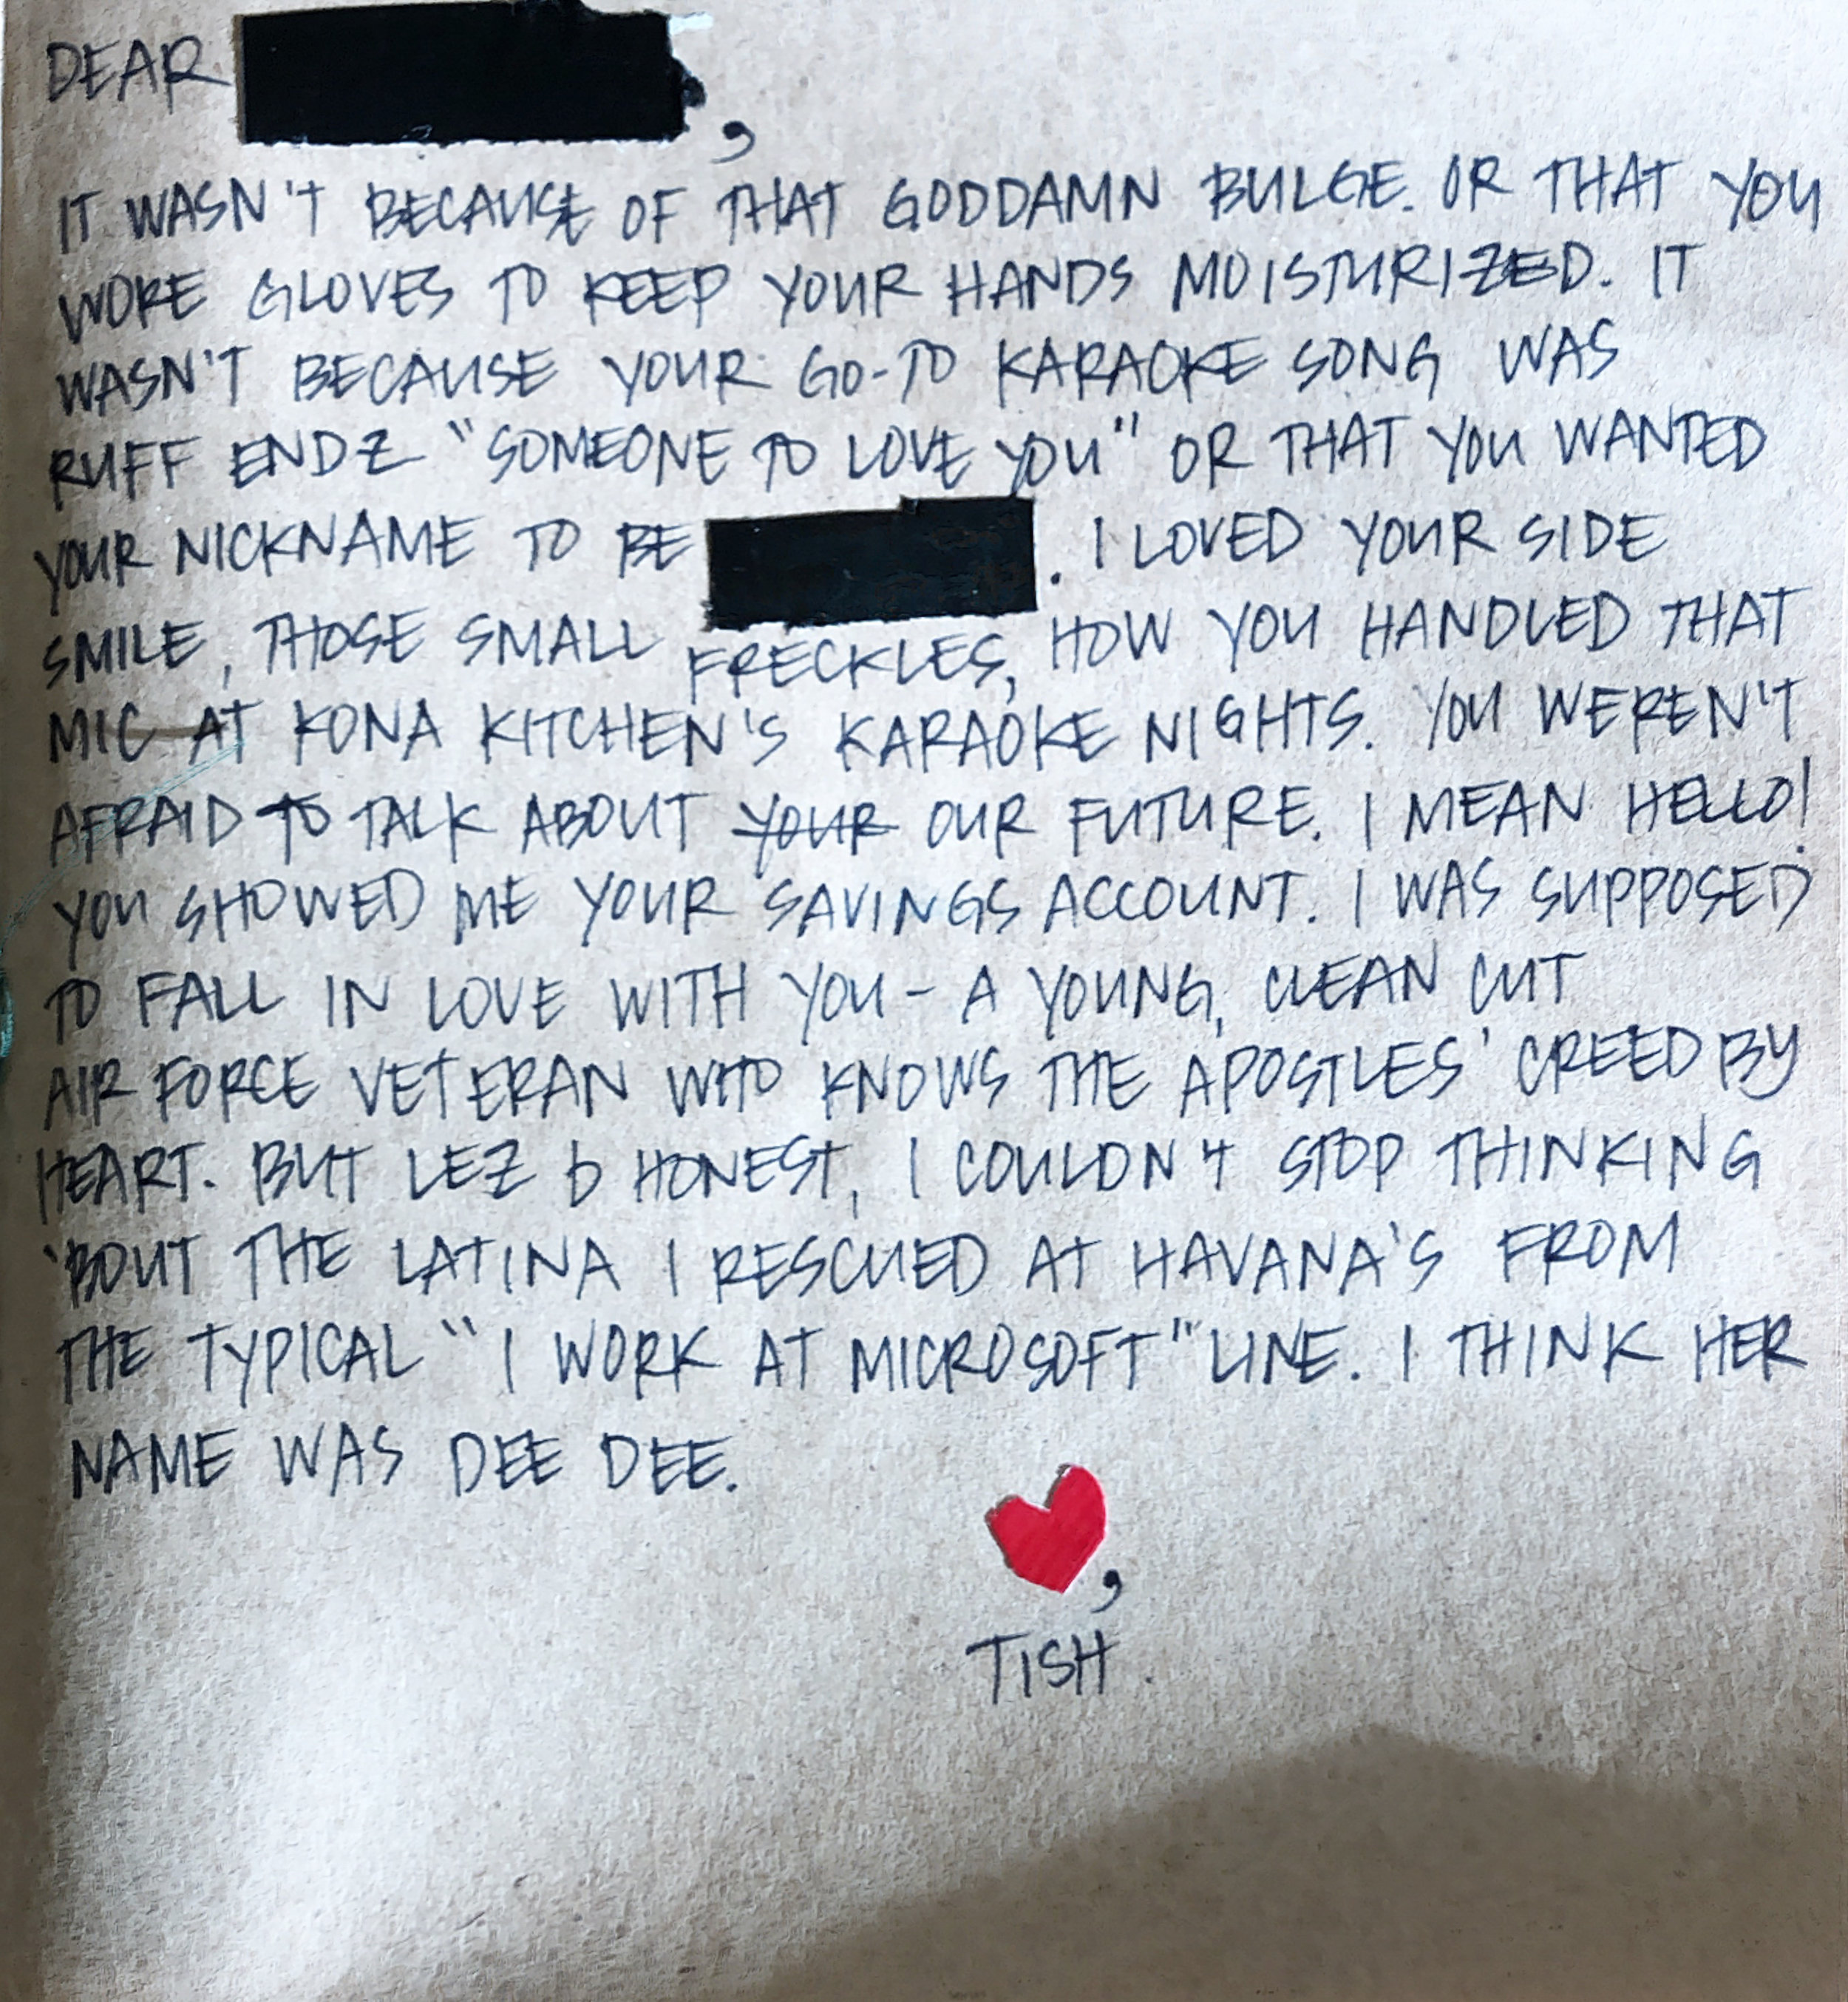 DEAR ,
IT WASN'T BECAUSE OF THAT GODDAMN BULGE. OR THAT YOU
WORE GLOVES TO KEEP YOUR HANDS MOISTURIZED. IT
WASN'T BECAUSE YOUR GO-TO KARAOKE SONG WAS
RUFF ENDZ "SOMEONE TO LOVE YOU" OR THAT YOU WANTED
YOUR NICKNAME TO BE . I LOVED YOUR SIDE
SMILE, THOSE SMALL FRECKLES, HOW YOU HANDLED THAT
MIC AT KONA KITCHEN'S KARAOKE NIGHTS. YOU WEREN'T
AFRAID TO TALK ABOUT YOUR OUR FUTURE. I MEAN HELLO!
YOU SHOWED ME YOUR SAVINGS ACCOUNT. I WAS SUPPOSED
TO FALL IN LOVE WITH YOU - A YOUNG, CLEAN CUT
AIR FORCE VETERAN WHO KNOWS THE APOSTLES' CREED BY
HEART. BUT LEZ b HONEST, I COULDN'T STOP THINKING
'BOUT THE LATINA I RESCUED AT HAVANA'S FROM
THE TYPICAL "I WORK AT MICROSOFT" LINE. I THINK HER
NAME WAS DEE DEE.
,
TISH.